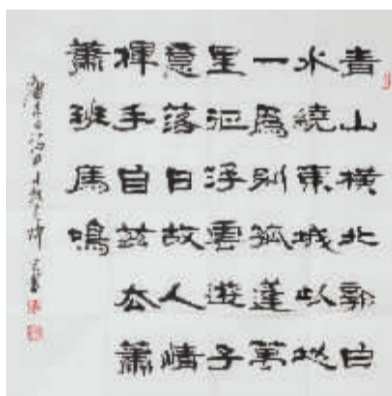 青山橫北郭白
水繞東城此地
一爲別孤蓬萬
里征浮雲遊子
意落日故人情
揮手自茲去蕭
蕭班馬鳴